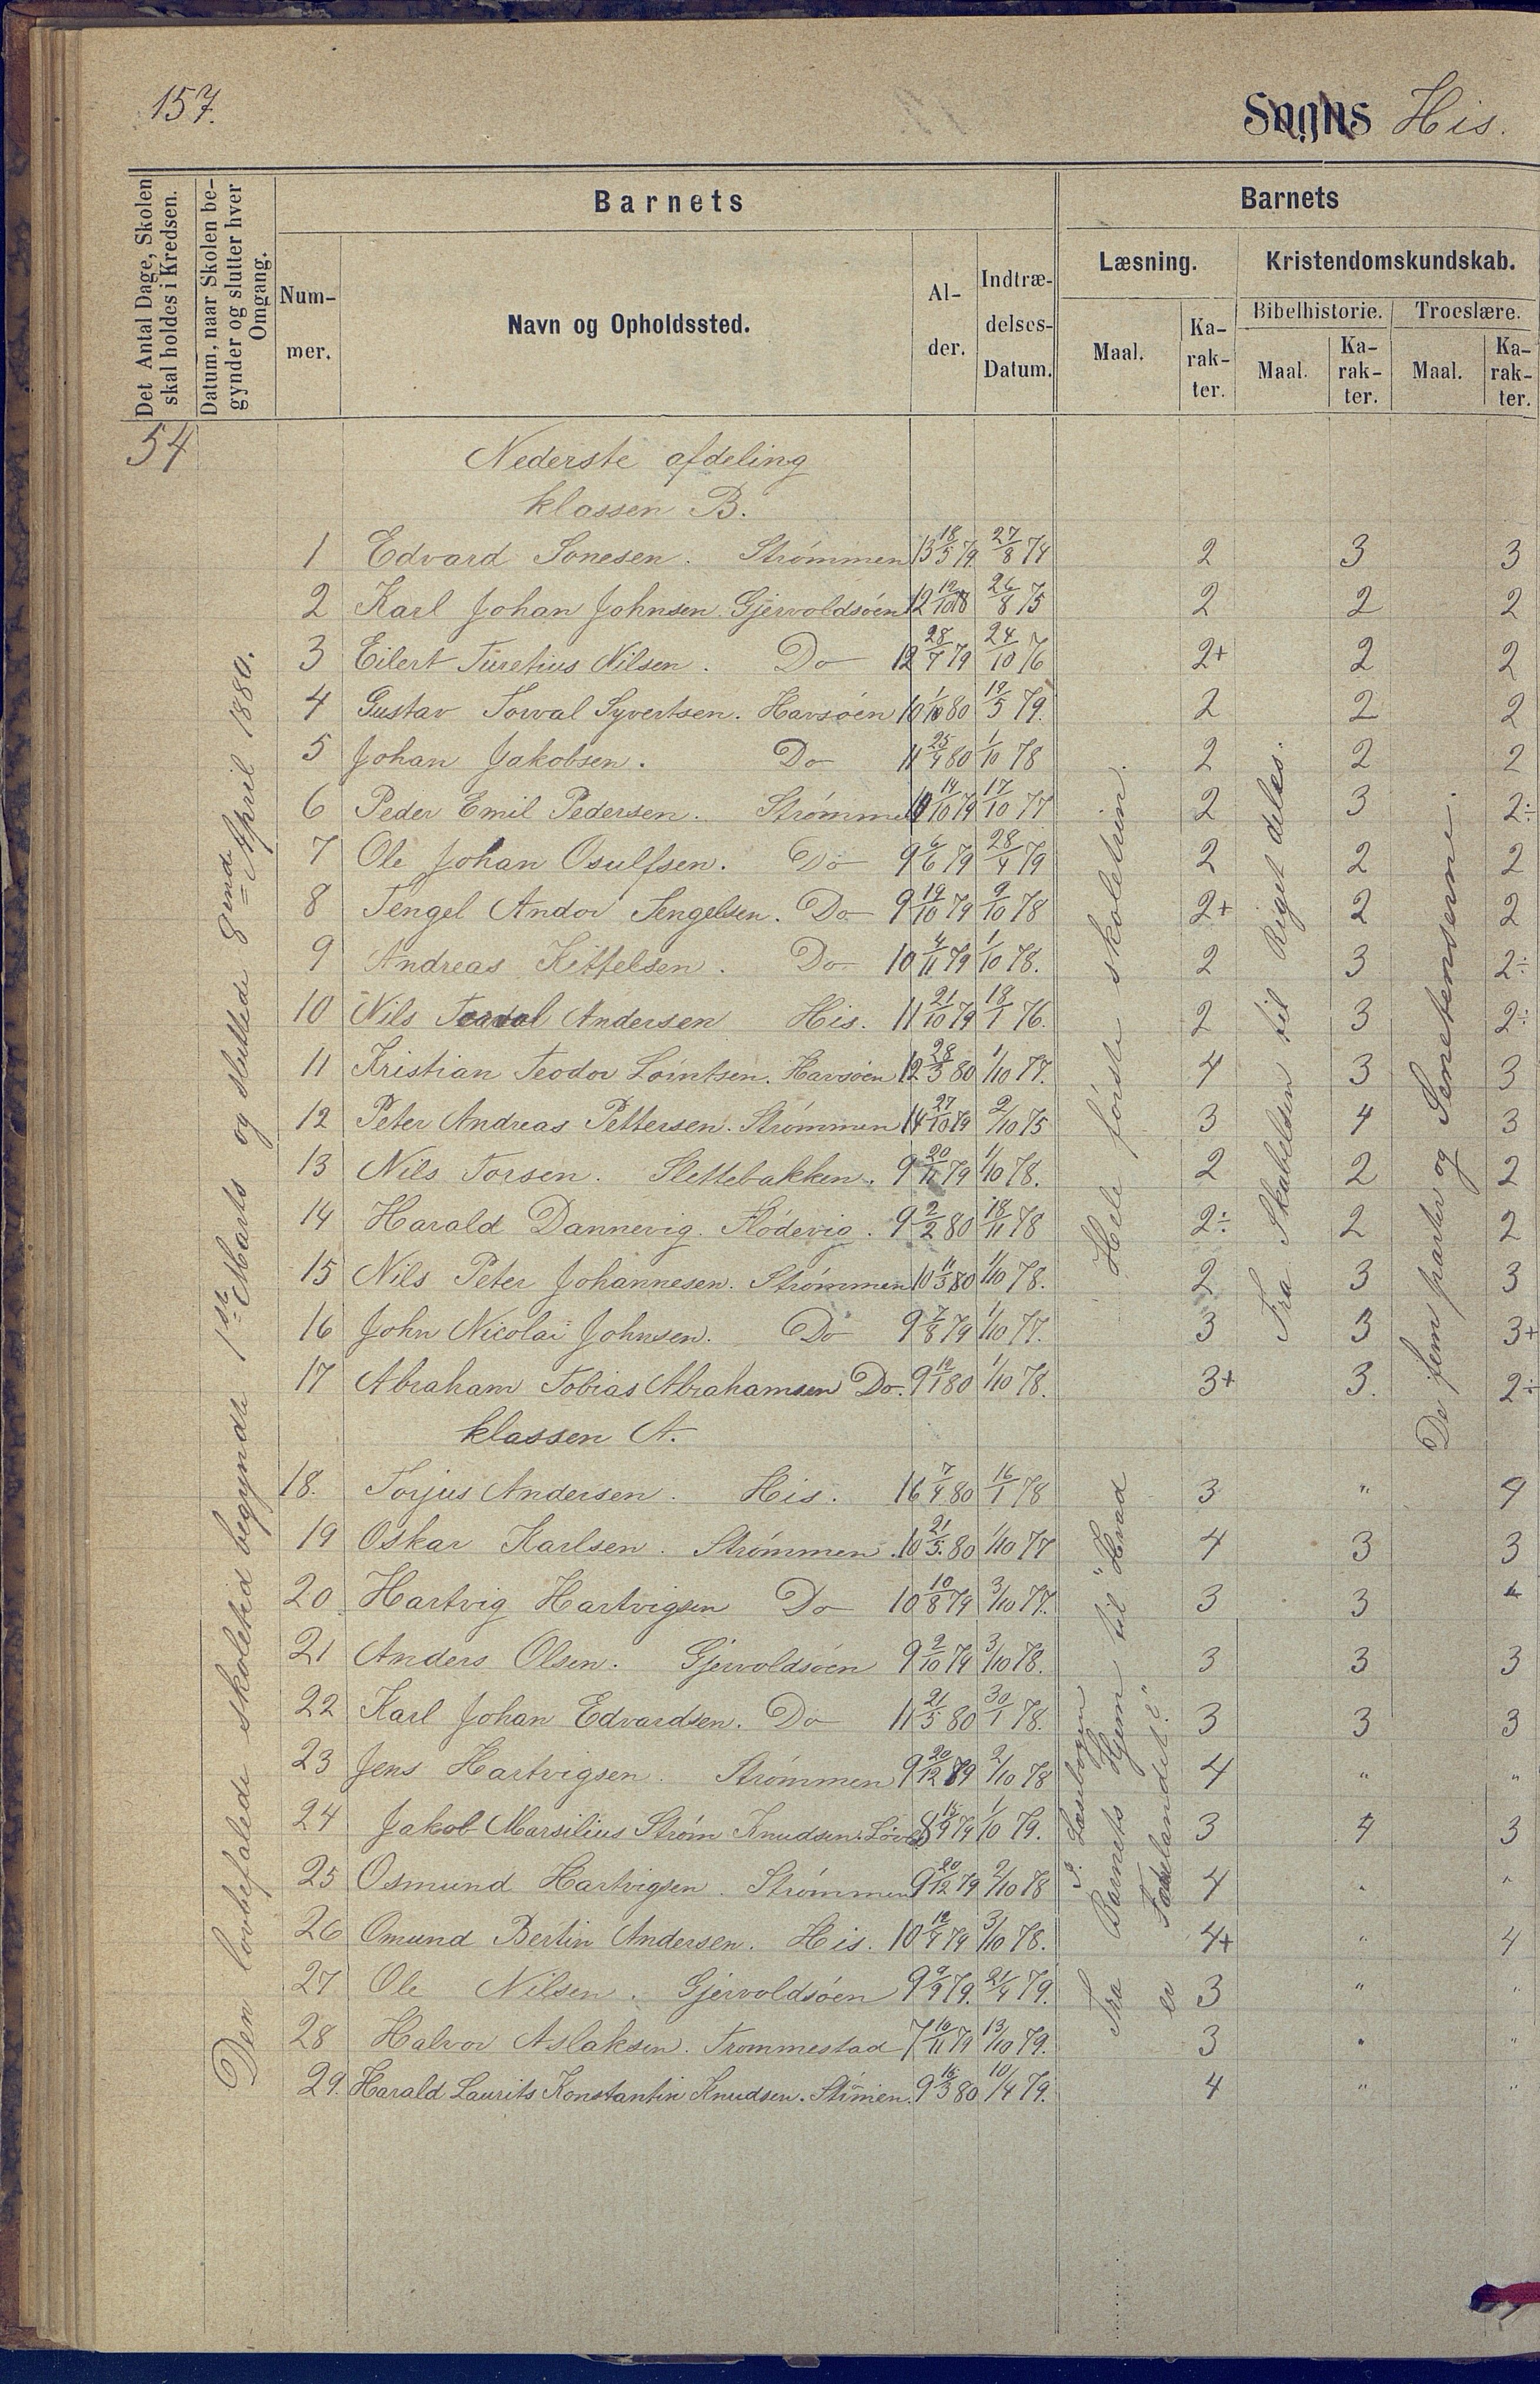 157.
Sogns His.
Det Antal Dage, Skolen skal holdes i Kredsen.
Datum, naar Skolen begynder og slutter hver Omgang.
Barnets
Barnets
Num-mer.
Navn og Opholdssted.
Al-der.
Indtræ-delses-Datum.
Læsning.
Kristendomskundskab.
Maal.
Ka-rak-ter.
Bibelhistorie.
Troeslære.
Maal.
Ka-rak-ter.
Maal.
Ka-rak-ter.
54
Den lovbefalede skoletid begyndte 1ste Marts og sluttede 8 April 1880.
Nederste afdeling
klassen B.
1 Edvard Sonesen. Strømmen 13 18/5 79 27/8 74 2 3 3
2 Karl Johan Johnsen. Gjervoldsøen 12 26/8 75 2 2 2
3 Eilert Nilsen. Do 12 28/7 79 24/10 76 2+ 2 2
4 Gustav Torval Syvertsen. Havsøen 10 1/10 80 19/5 79. 2 2 2
5 Johan Jakobsen. Do 11 25/4 80 1/10 78 2 2 2
6 Peder Emil Pedersen. Strømmen 14/10 79 17/10 77 2 3 2÷
7 Ole Johan Osulfsen. Do 9 6/6 79 28/4 79 2 2 2
8 Tengel Andor Tengelsen. Do 9 19/10 79 9/10 78 2+ 2 2
9 Andreas Kittelsen. Do 10 4/11 79 1/10 78. 2 3 2÷
10 Nils Andersen His. 11 21/10 79 18/1 76. 2 3 2÷
11 Kristian Teodor Lorntsen. Havsøen 12 28/3 80 1/10 77. 4 3 3
12 Peter Andreas Pettersen. Strømmen 14 27/10 79 2/10 75 3 4 3
13 Nils Torsen. Slettebakken. 9 20/11 79 1/10 78. 2 2 2
14 Harald Dannevig. Flødevig. 9 2/2 80 18/11 78 2÷ 2 2
15 Nils Peter Johannesen. Strømmen 10 11/3 80 1/10 78. 2 3 3
16 John Nicolai Johnsen. Do 9 7/8 79 1/10 77. 3 3 3+
17 Abraham Tobias Abrahamsen Do. 9 19/1 80 1/10 78. 3+ 3. 2÷
Hele første skoletrin.
Fra Skabelsen til Riget deles.
De fem parter og Senetenserne.
klassen A.
18. Torjus Andersen. His. 16 7/4 80 16/1 78 3 " 4
19 Oskar Karlsen. Strømmen. 10 21/5. 80 1/10 77 4 3 3
20 Hartvig Hartvigsen Do 10 10/8 79 3/10 77. 3 3 4
21 Anders Olsen. Gjervoldsøen 9 9/10 79 3/10 78. 3 3 3
22 Karl Johan Edvardsen. Do 11 21/5 80 30/1 78. 3 3 3
23 Jens Hartvigsen. Strømmen 9 20/12 79 2/10 78 4 " "
24 Jakob Marsilius Strøm Knudsen. 8 79 1/10 79. 3 4 3
25 Osmund Hartvigsen. Strømmen 9 20/12 79 2/10 78 4 " "
26 Omund Bertin Andersen. His. 10 19/4 79 3/10 78. 4+ " 4
27 Ole Nilsen. Gjervoldsøen 9 9/9 79. 21/4 79. 3 " "
28 Halvor Aslaksen. Trommestad 7 10/11 79 13/10 79. 3 " "
29. Harald Laurits Konstantin Knudsen. Stømen. 9 16/3 80 10/4 79. 4 " "
I Læsebogen
Fra Barnets Hjem til "Hvad
er Fædrelandet?"